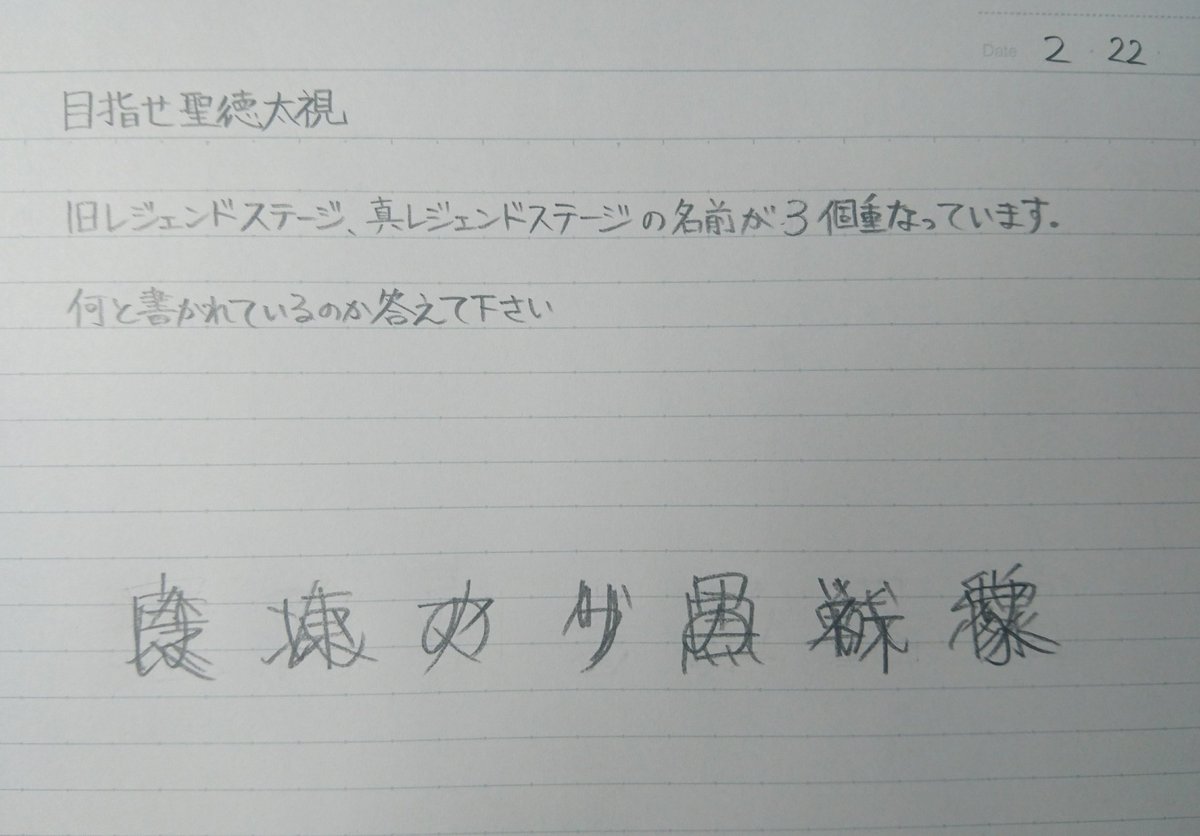 Date 2 22
目指せ聖徳太視
旧レジェンドステージ、真レジェンドステージの名前が3個重なっています。
何と書かれているのか答えて下さい